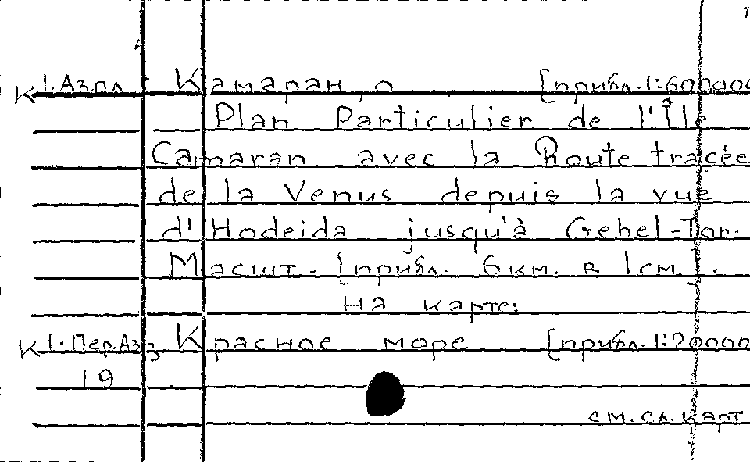 К 1:Аз.пл Камаран, о [прибл. 1:600000
Plan Particulier de l'Île
Camaran avec la Route tracée
de la Venus depuis la vue
d'Hodeida jusqu'à Gebel-Tor.
Масшт. [прибл. 6 км. в 1 см.
На карте:
К 1:Пер.Аз Красное море [прибл. 1:20000
19
см. сл. карт